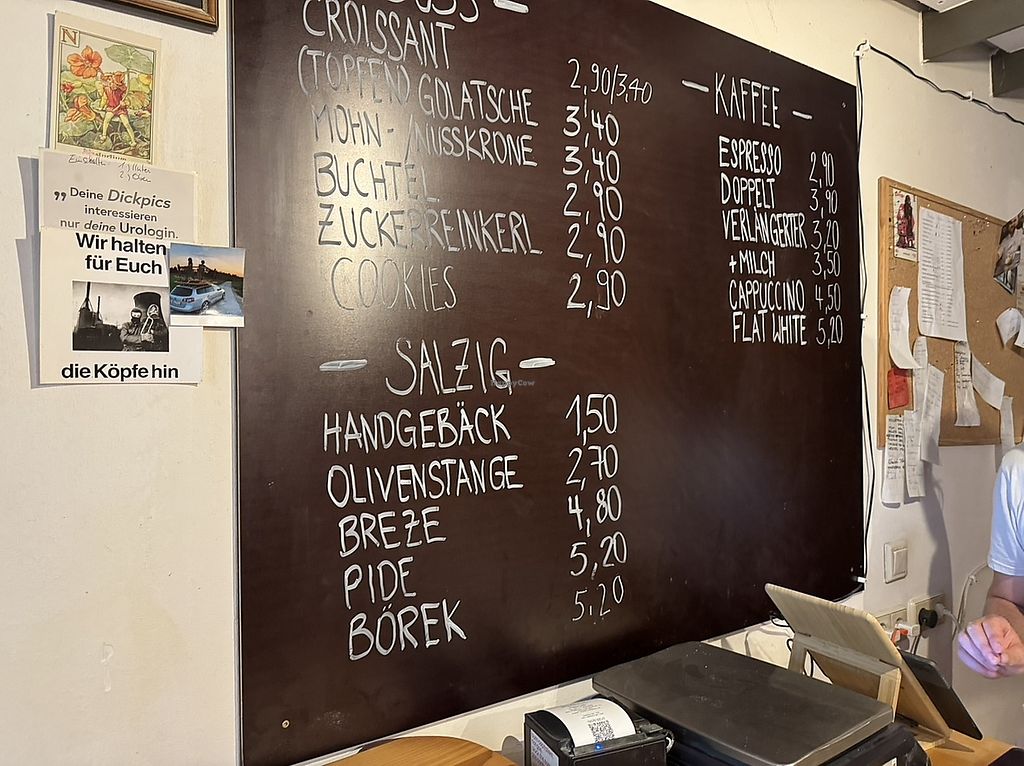 N
„ Deine Dickpics
interessieren
nur deine Urologin.
Wir halten
für Euch
die Köpfe hin
CROISSANT 2,90/3,40
(TOPFEN) GOLATSCHE 3,40
MOHN- /NUSSKRONE 3,40
BUCHTEL 2,90
ZUCKERREINKERL 2,90
COOKIES 2,90
— SALZIG —
HANDGEBÄCK 1,50
OLIVENSTANGE 2,70
BREZE 4,80
PIDE 5,20
BÖREK 5,20
— KAFFEE —
ESPRESSO 2,90
DOPPELT 3,90
VERLÄNGERTER 3,20
+MILCH 3,50
CAPPUCCINO 4,50
FLAT WHITE 5,20
HappyCow